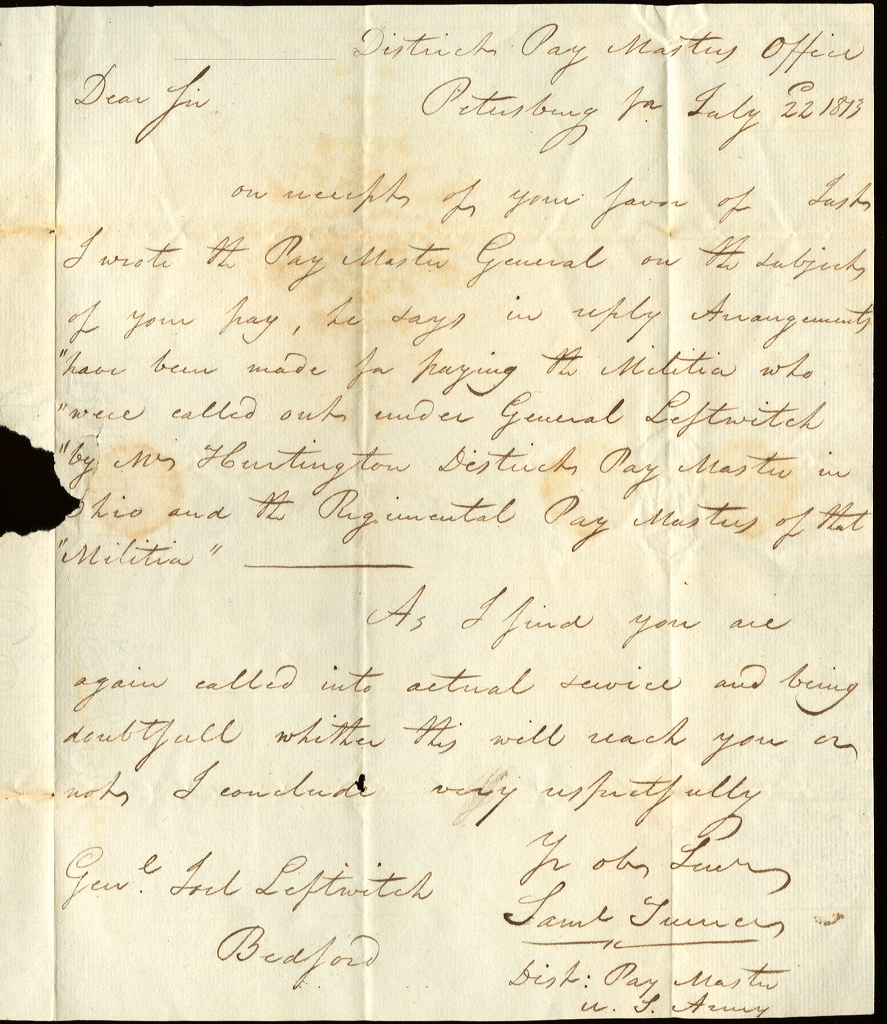 District Pay Masters Office
Dear Sir
Petersburg Va July 22 1813
on receipt of your favor of last
I wrote the Pay Master General on the subject
of your pay, he says in reply Arrangements
"have been made for paying the Militia who
"were called out under General Leftwitch
"by Mr Huntington District Pay Master in
Ohio and the Regimental Pay Masters of that
"Militia"
As I find you are
again called into actual service and being
doubtfull whither this will reach you or
not, I conclude very respectfully
Yr ob Serv
Genl. Joel Leftwitch
Saml Turner
Bedford
Dist: Pay Master
U. S. Army